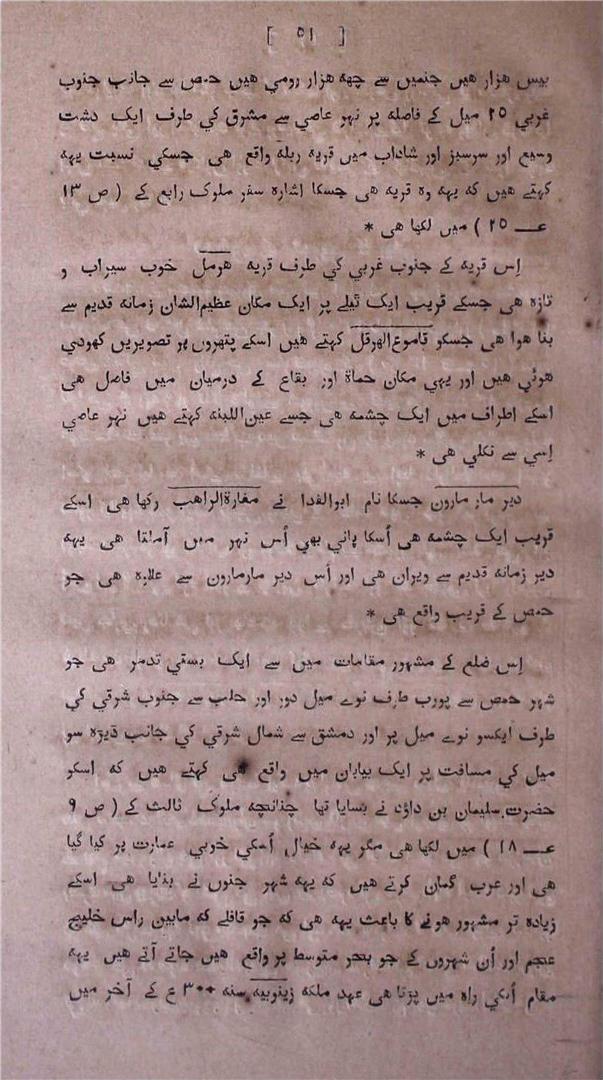 [ ٥١ ]
بیس هزار هیں جنمیں سے چهه هزار رومي هیں حمص سے جانب جنوب
غربي ٢٥ میل کے فاصله پر نہر عاصي سے مشرق کي طرف ایک دشت
وسیع اور سرسبز اور شاداب میں قریه ربله واقع هی جسکي نسبت یهه
کہتے هیں که یهه وه قریه هی جسکا اشاره سفر ملوک رابع کے ( ص ١٣
عــ ٢٥ ) میں لکها هی *
اِس قریه کے جنوب غربي کي طرف قریه هرمل خوب سیراب و
تازه هی جسکے قریب ایک ٹیلے پر ایک مکان عظیم‌الشان زمانه قدیم سے
بنا هوا هی جسکو قاموع‌الهرقل کہتے هیں اسکے پتهروں پر تصویریں کهودي
هوئي هیں اور یہي مکان حماة اور بقاع کے درمیان میں فاصل هی
اسکے اطراف میں ایک چشمه هی جسے عین‌اللبنه کہتے هیں نہر عاصي
اِسي سے نکلي هی *
دیر مار مارون جسکا نام ابوالفدا نے مغارة‌الراهب رکها هی اسکے
قریب ایک چشمه هی اُسکا پاني بهي اُس نہر میں آملتا هی یهه
دیر زمانه قدیم سے ویران هی اور اُس دیر مارمارون سے علاوه هی جو
حمص کے قریب واقع هی *
اِس ضلع کے مشہور مقامات میں سے ایک بستي تدمر هی جو
شہر حمص سے پورب طرف نوے میل دور اور حلب سے جنوب شرقي کي
طرف ایکسو نوے میل پر اور دمشق سے شمال شرقي کي جانب ڈیڑه سو
میل کي مسافت پر ایک بیابان میں واقع هی کہتے هیں که اسکو
حضرت سلیمان بن داؤد نے بسایا تها چنانچه ملوک ثالث کے ( ص ٩
عــ ١٨ ) میں لکها هی مگر یهه خیال اُسکي خوبي عمارت پر کیا گیا
هی اور عرب گمان کرتے هیں که یهه شہر جنوں نے بنایا هی اسکے
زیاده تر مشہور هونے کا باعث یهه هی که جو قافلے که مابین راس خلیج
عجم اور اُن شہروں کے جو بحر متوسط پر واقع هیں جاتے آتے هیں یهه
مقام اُنکي راه میں پڑتا هی عہد ملکه زینوبیه سنه ٣٠٠ ع کے آخر میں